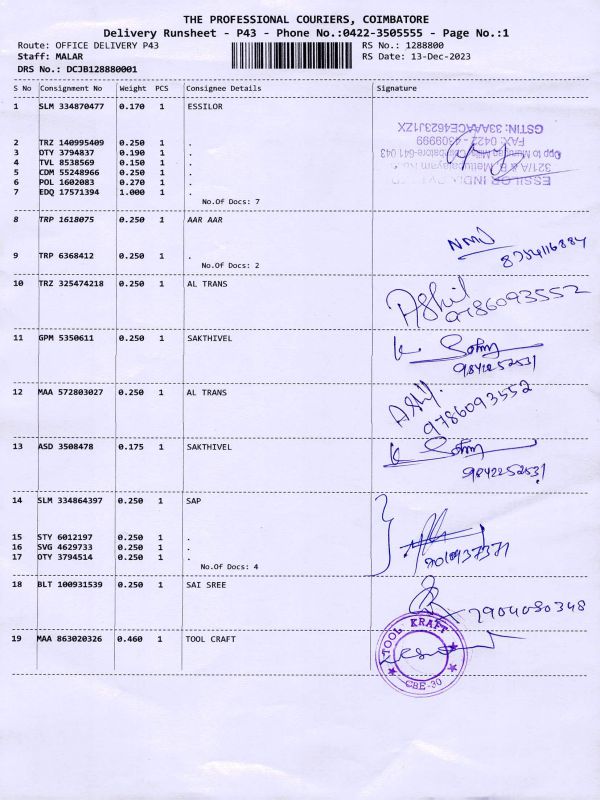 THE PROFESSIONAL COURIERS, COIMBATORE
Delivery Runsheet - P43 - Phone No.:0422-3505555 - Page No.:1
Route: OFFICE DELIVERY P43 RS No.: 1288800
Staff: MALAR RS Date: 13-Dec-2023
DRS No.: DCJB128880001
S No Consignment No Weight PCS Consignee Details Signature
1 SLM 334870477 0.170 1 ESSILOR
GSTIN: 33AAACE4623J1ZX
2 TRZ 140995409 0.250 1 .
3 DTY 3794837 0.190 1 .
4 TVL 8538569 0.150 1 .
5 CDM 55248966 0.250 1 .
6 POL 1602083 0.270 1 .
7 EDQ 17571394 1.000 1 .
No.Of Docs: 7
8 TRP 1618075 0.250 1 AAR AAR
9 TRP 6368412 0.250 1 .
No.Of Docs: 2
10 TRZ 325474218 0.250 1 AL TRANS
Ashil
9786093552
11 GPM 5350611 0.250 1 SAKTHIVEL
12 MAA 572803027 0.250 1 AL TRANS
9786093552
13 ASD 3508478 0.175 1 SAKTHIVEL
9842252531
14 SLM 334864397 0.250 1 SAP
15 STY 6012197 0.250 1 .
16 SVG 4629733 0.250 1 .
17 OTY 3794514 0.250 1 .
No.Of Docs: 4
18 BLT 100931539 0.250 1 SAI SREE
7904080348
19 MAA 863020326 0.460 1 TOOL CRAFT
TOOL KRAFT
CBE-30